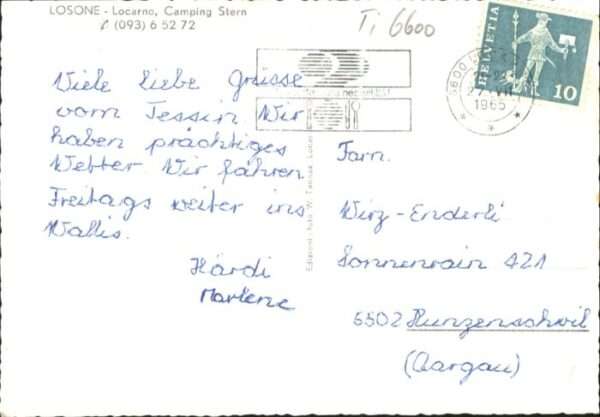 LOSONE - Locarno, Camping Stern
(093) 6 52 72
Ti 6600
HELVETIA
10
6600
1965
Viele liebe Grüsse
vom Tessin. Wir
haben prächtiges
Wetter. Wir fahren
Freitags weiter ins
Wallis.
Härdi
Marlene
Fam.
Wirz-Enderli
Sonnenrain 421
5502 Hunzenschwil
(Aargau)